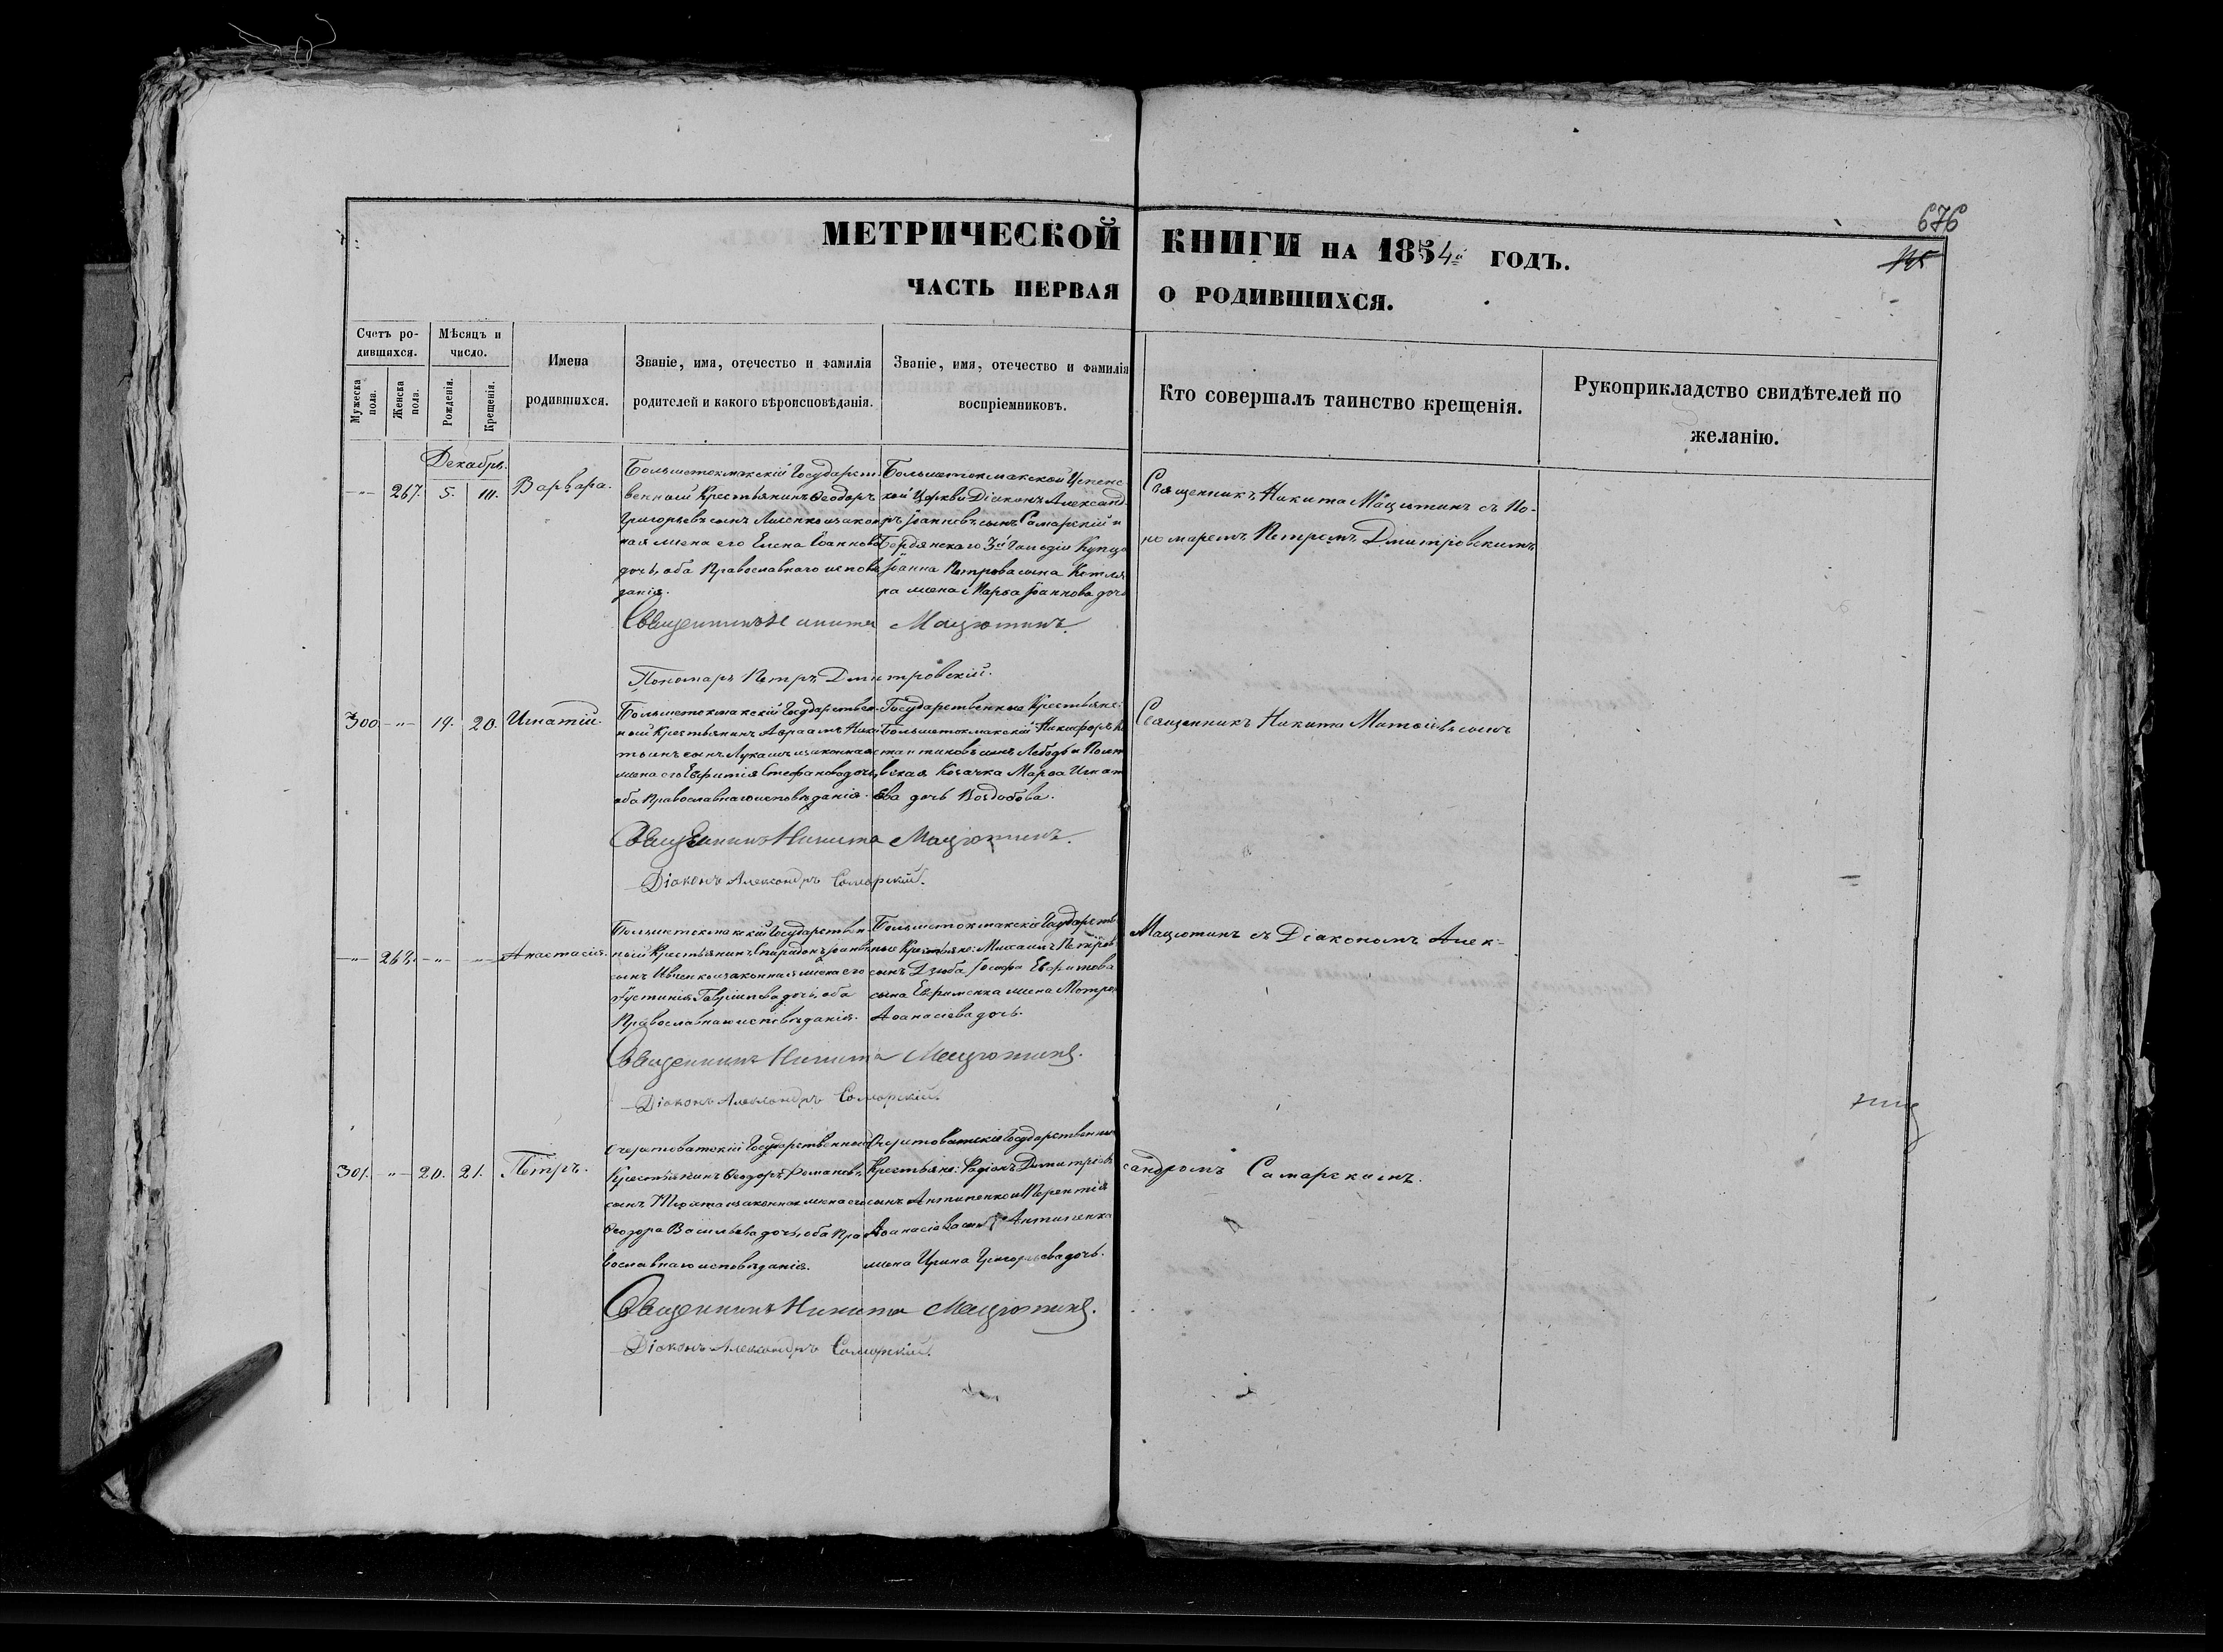 676
МЕТРИЧЕСКОЙ КНИГИ НА 1854й ГОДЪ.
ЧАСТЬ ПЕРВАЯ О РОДИВШИХСЯ.
Счетъ родившихся.
Мужеска пола.
Женска пола.
Мѣсяцъ и число.
Рожденія.
Крещенія.
Имена родившихся.
Званіе, имя, отечество и фамилія родителей и какого вѣроисповѣданія.
Званіе, имя, отечество и фамилія воспріемниковъ.
Кто совершалъ таинство крещенія.
Рукоприкладство свидѣтелей по желанію.
Декабрь.
267. 5. Варвара.
Большетокмакскій Государст
венный Крестьянинъ Феодоръ
Григорьевъ сынъ Лисенко и закон
ная жена его Елена Іоаннова
дочь, оба Православнаго исповѣ
данія.
Большетокмакской Успенс
кой Церкви Діаконъ Александ
ръ Іоанновъ сынъ Самарскій и
Бердянскаго 3й Гильдіи Купца
Іоанна Петрова сына Котля
ра жена Марѳа Іоаннова дочь
Священникъ Никита Мацютинъ съ По-
номаремъ Петромъ Дмитровскимъ
Священникъ Никита Мацютинъ.
Пономарь Петръ Дмитровскій.
300 19. 20. Игнатій.
Большетокмакскій Государствен
ный Крестьянинъ Авраамъ
сынъ и законная
жена его Стефанова дочь,
оба Православнаго исповѣданія.
Государственные Крестьяне:
Большетокмакскій Никифоръ
сынъ Лебедь и Полта
вская Козачка Марѳа Игнать
ева дочь
Священникъ Никита
Священникъ Никита Мацютинъ.
Діаконъ Александръ Самарскій.
268. Анастасія.
Большетокмакскій Государствен
ный Крестьянинъ Спиридонъ Іоанновъ
сынъ Ивченко и законная жена его
Іустинія Гавріилова дочь, оба
Православнаго исповѣданія.
Большетокмакскіе Государств
ные Крестьяне: Михаилъ Петров
сынъ Дзюба Іосифа Евфимова
сына Евфименка жена Мотро
Аѳанасіева дочь.
Мацютинъ съ Діакономъ Алек-
Священникъ Никита Мацютинъ.
Діаконъ Александръ Самарскій.
301. 20. 21. Петръ.
Очеретоватскій Государственный
Крестьянинъ Феодоръ Романовъ
сынъ и законная жена его
Феодора Васильева дочь, оба Пра
вославнаго исповѣданія.
Очеретоватскіе Государственные
Крестьяне: Родіонъ Димитріевъ
сынъ Антипенко и Терентія
Аѳанасіева сына Антипенка
жена Ирина Григорьева дочь.
сандромъ Самарскимъ.
Священникъ Никита Мацютинъ.
Діаконъ Александръ Самарскій.